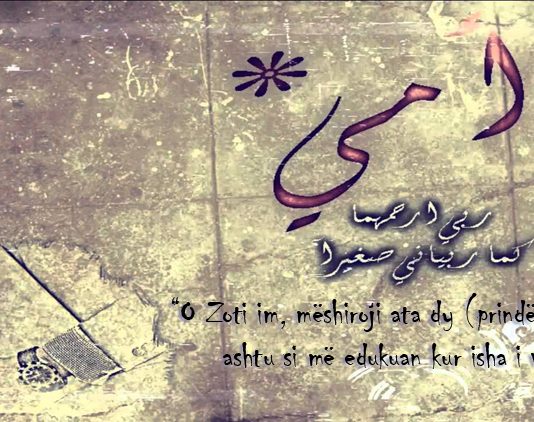 امي
ربي ارحمهما
كما ربياني صغيراً
“O Zoti im, mëshiroji ata dy (prindë
ashtu si më edukuan kur isha i v